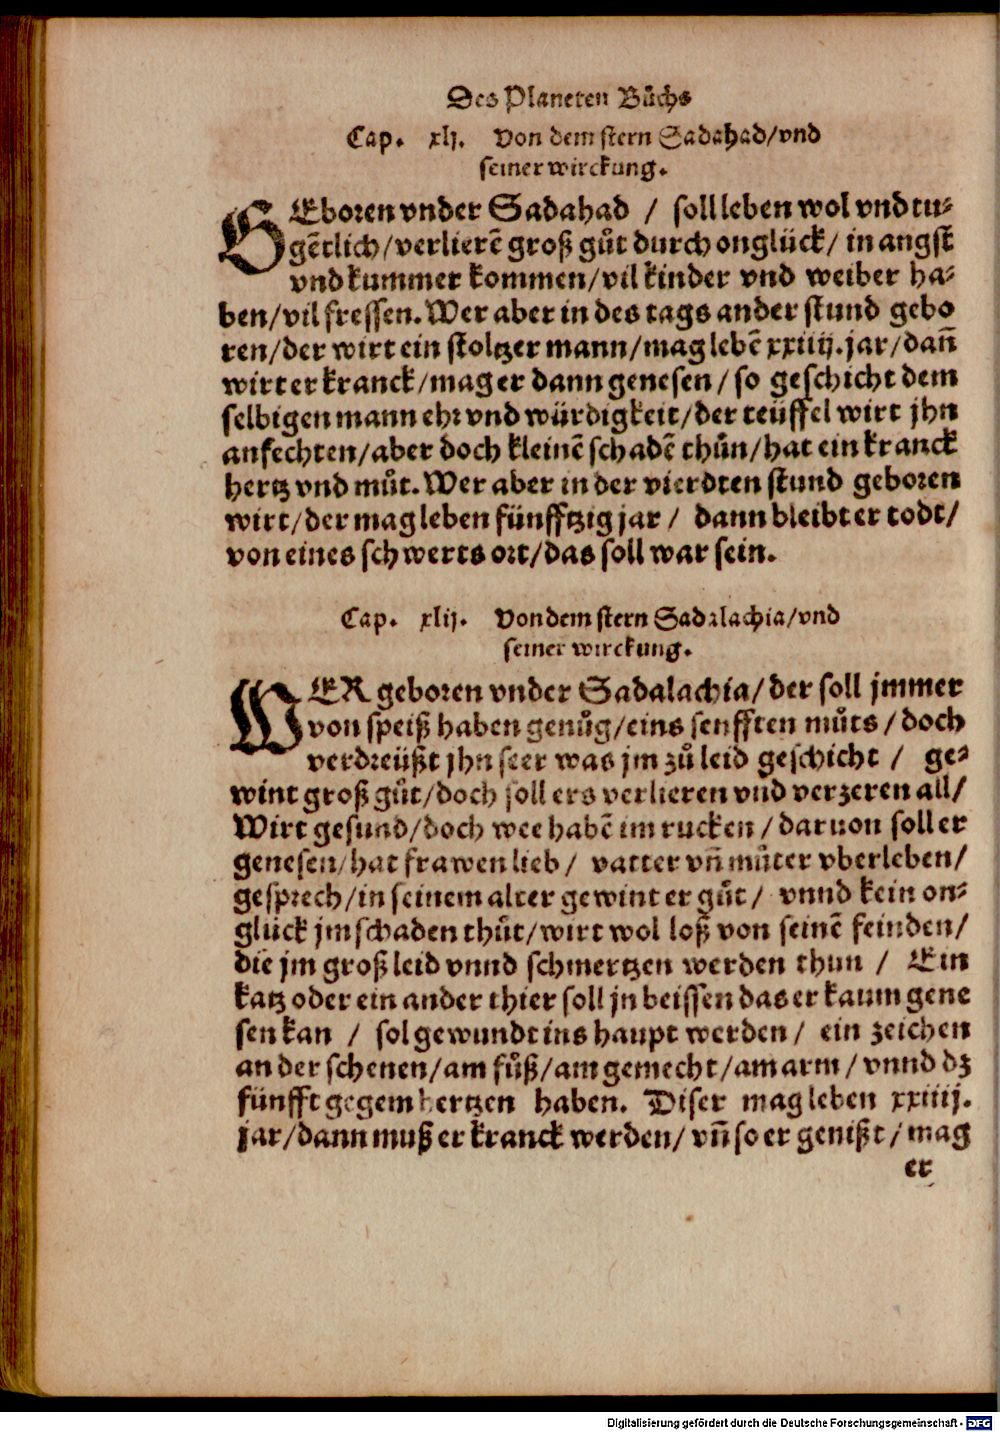 Des Planeten Bůchs
Cap. xlj. Von dem stern Sadahad/vnd
seiner wirckung.
GEboren vnder Sadahad / soll leben wol vnd tu-
gẽtlich/verlierẽ groß gůt durch onglück/ in angst
vnd kummer kommen/vil kinder vnd weiber ha-
ben/vil fressen. Wer aber in des tags ander stund gebo
ren/der wirt ein stoltzer mann/mag lebẽ xxiiij. jar/dañ
wirt er kranck/mag er dann genesen/so geschicht dem
selbigen mann ehr vnd würdigkeit/der teüffel wirt jhn
anfechten/aber doch kleinẽ schadẽ thůn/hat ein kranck
hertz vnd můt. Wer aber in der vierdten stund geboren
wirt/der mag leben fünfftzig jar / dann bleibt er todt/
von eines schwerts ort/das soll war sein.
Cap. xlij. Von dem stern Sadalachia/vnd
seiner wirckung.
WER geboren vnder Sadalachia/der soll jmmer
von speiß haben genůg/eins senfften můts/doch
verdreüßt jhn seer was jm zů leid geschicht / ge-
wint groß gůt/doch soll ers verlieren vnd verzeren all/
Wirt gesund/doch wee habẽ im rucken/daruon soll er
genesen/hat frawen lieb/ vatter vñ můter vberleben/
gesprech/in seinem alter gewint er gůt/ vnnd kein on-
glück jm schaden thůt/wirt wol loß von seinẽ feinden/
die jm groß leid vnnd schmertzen werden thun / Ein
katz oder ein ander thier soll jn beissen das er kaum gene
sen kan / sol gewundt ins haupt werden/ ein zeichen
an der schenen/am fůß/am gemecht/am arm/vnnd dz
fünfft gegem hertzen haben. Diser mag leben xxiiij.
jar/dann muß er kranck werden/vñ so er genißt/mag
er
Digitalisierung gefördert durch die Deutsche Forschungsgemeinschaft - DFG